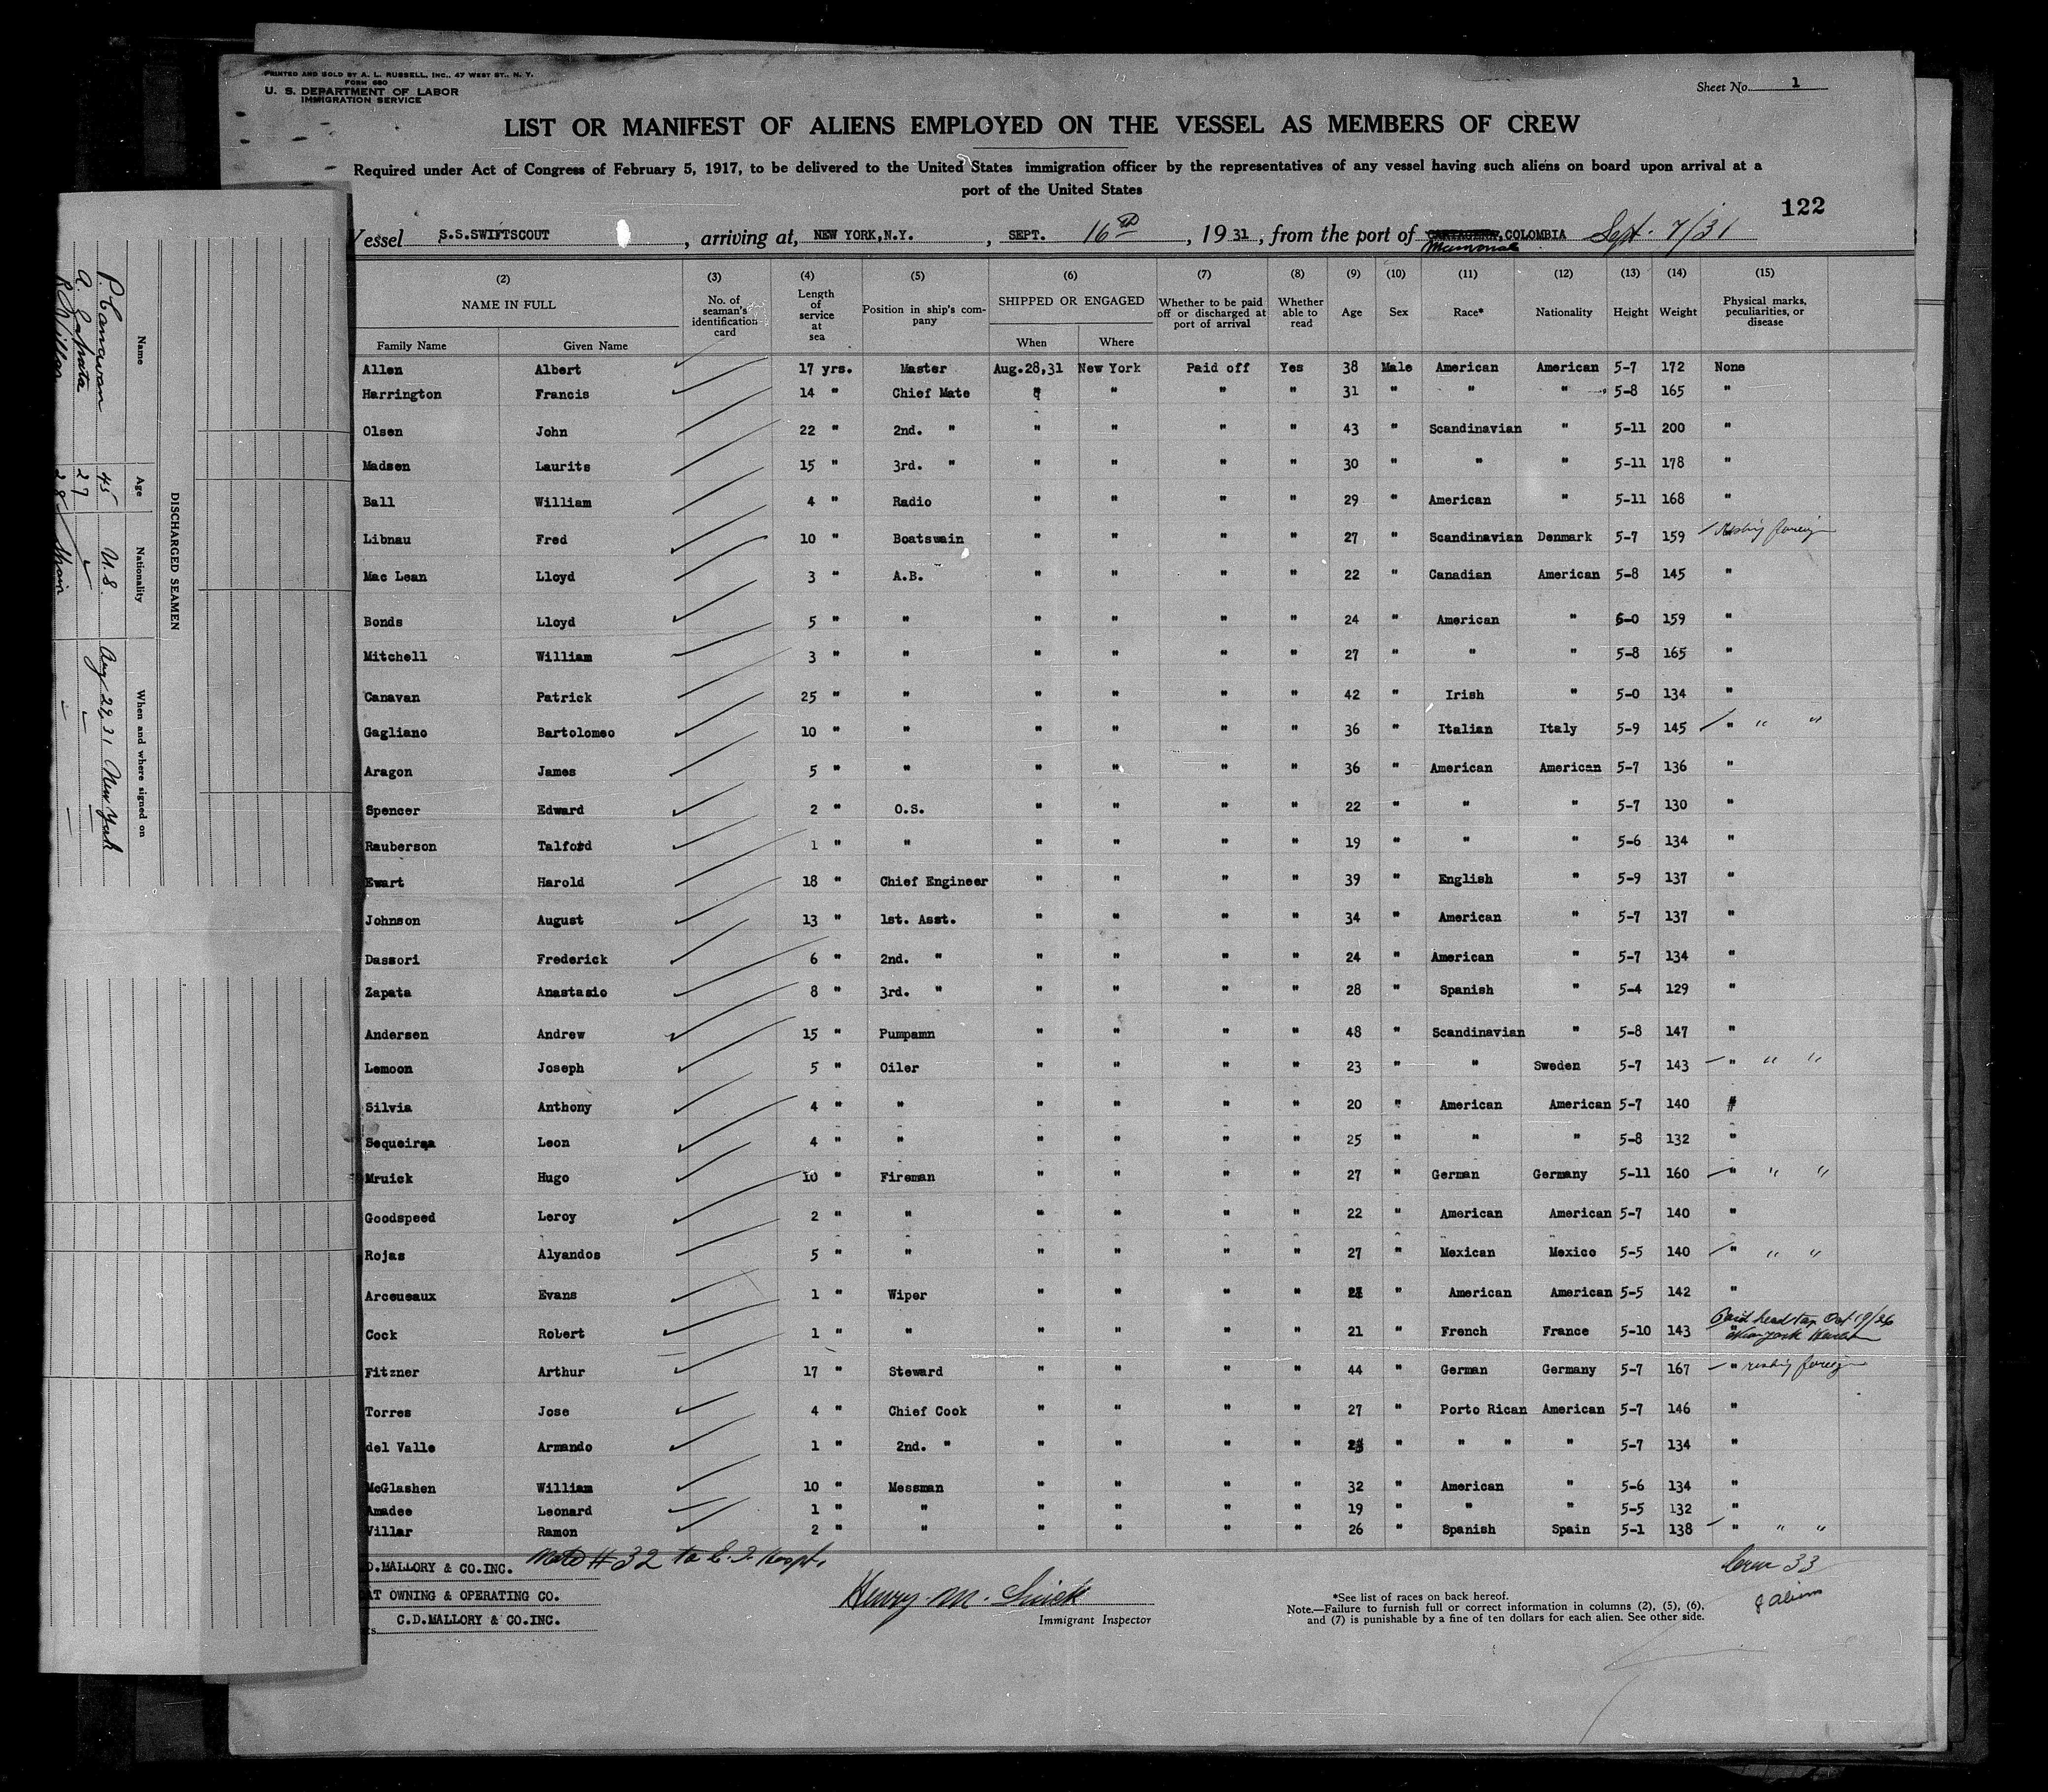 PRINTED AND SOLD BY A. L. RUSSELL, INC., 47 WEST ST., N. Y.
FORM 680
U. S. DEPARTMENT OF LABOR
IMMIGRATION SERVICE
Sheet No. 1
LIST OR MANIFEST OF ALIENS EMPLOYED ON THE VESSEL AS MEMBERS OF CREW
Required under Act of Congress of February 5, 1917, to be delivered to the United States immigration officer by the representatives of any vessel having such aliens on board upon arrival at a
port of the United States
122
Vessel S.S.SWIFTSCOUT, arriving at, NEW YORK,N.Y., SEPT. 16th, 1931, from the port of CARTAGENA,COLOMBIA Sept. 7/31
Mamonal
(2) (3) (4) (5) (6) (7) (8) (9) (10) (11) (12) (13) (14) (15)
NAME IN FULL No. of seaman's identification card Length of service at sea Position in ship's company SHIPPED OR ENGAGED Whether to be paid off or discharged at port of arrival Whether able to read Age Sex Race* Nationality Height Weight Physical marks, peculiarities, or disease
Family Name Given Name When Where
Allen Albert 17 yrs. Master Aug.28,31 New York Paid off Yes 38 Male American American 5-7 172 None
Harrington Francis 14 " Chief Mate " " " " 31 " " " 5-8 165 "
Olsen John 22 " 2nd. " " " " " 43 " Scandinavian " 5-11 200 "
Madsen Laurits 15 " 3rd. " " " " " 30 " " " 5-11 178 "
Ball William 4 " Radio " " " " 29 " American " 5-11 168 "
Libnau Fred 10 " Boatswain " " " " 27 " Scandinavian Denmark 5-7 159 reship foreign
Mac Lean Lloyd 3 " A.B. " " " " 22 " Canadian American 5-8 145 "
Bonds Lloyd 5 " " " " " " 24 " American " 6-0 159 "
Mitchell William 3 " " " " " " 27 " " " 5-8 165 "
Canavan Patrick 25 " " " " " " 42 " Irish " 5-0 134 "
Gagliano Bartolomeo 10 " " " " " " 36 " Italian Italy 5-9 145 " " "
Aragon James 5 " " " " " " 36 " American American 5-7 136 "
Spencer Edward 2 " O.S. " " " " 22 " " " 5-7 130 "
Rauberson Talford 1 " " " " " " 19 " " " 5-6 134 "
Ewart Harold 18 " Chief Engineer " " " " 39 " English " 5-9 137 "
Johnson August 13 " 1st. Asst. " " " " 34 " American " 5-7 137 "
Dassori Frederick 6 " 2nd. " " " " " 24 " American " 5-7 134 "
Zapata Anastasio 8 " 3rd. " " " " " 28 " Spanish " 5-4 129 "
Andersen Andrew 15 " Pumpamn " " " " 48 " Scandinavian " 5-8 147 "
Lemoon Joseph 5 " Oiler " " " " 23 " " Sweden 5-7 143 " " "
Silvia Anthony 4 " " " " " " 20 " American American 5-7 140 "
Sequeirsa Leon 4 " " " " " " 25 " " " 5-8 132 "
Mruick Hugo 10 " Fireman " " " " 27 " German Germany 5-11 160 " " "
Goodspeed Leroy 2 " " " " " " 22 " American American 5-7 140 "
Rojas Alyandos 5 " " " " " " 27 " Mexican Mexico 5-5 140 " " "
Arceueaux Evans 1 " Wiper " " " " " American American 5-5 142 "
Cock Robert 1 " " " " " " 21 " French France 5-10 143 " Paid head tax Oct 19/26 New York
Fitzner Arthur 17 " Steward " " " " 44 " German Germany 5-7 167 " reship foreign
Torres Jose 4 " Chief Cook " " " " 27 " Porto Rican American 5-7 146 "
del Valle Armando 1 " 2nd. " " " " " " " " " 5-7 134 "
McGlashen William 10 " Messman " " " " 32 " American " 5-6 134 "
Amadee Leonard 1 " " " " " " 19 " " " 5-5 132 "
Villar Ramon 2 " " " " " " 26 " Spanish Spain 5-1 138 " " "
D.MALLORY & CO.INC.
Note #32 to E. I. Hospt.
AT OWNING & OPERATING CO.
C.D.MALLORY & CO.INC.
Immigrant Inspector
*See list of races on back hereof.
Note.—Failure to furnish full or correct information in columns (2), (5), (6),
and (7) is punishable by a fine of ten dollars for each alien. See other side.
Crew 33
8 aliens
DISCHARGED SEAMEN
Name Age Nationality When and where signed on
P. Canavan 45 U.S. Aug 29,31 New York
A. Zapata 27
R. Villar 28 Spain